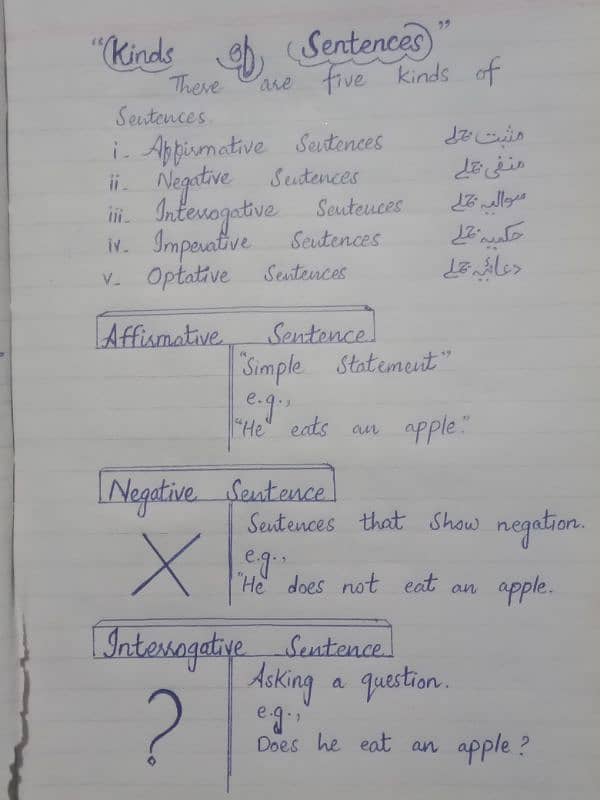 "Kinds of Sentences"
There are five kinds of
Sentences.
i- Affirmative Sentences مثبت جملے
ii- Negative Sentences منفی جملے
iii- Interrogative Sentences سوالیہ جملے
iv- Imperative Sentences حکمیہ جملے
v- Optative Sentences دعائیہ جملے
Affirmative Sentence
"Simple Statement"
e.g.,
"He eats an apple."
Negative Sentence
Sentences that show negation.
e.g.,
"He does not eat an apple.
Interrogative Sentence
Asking a question.
?
e.g.,
Does he eat an apple?